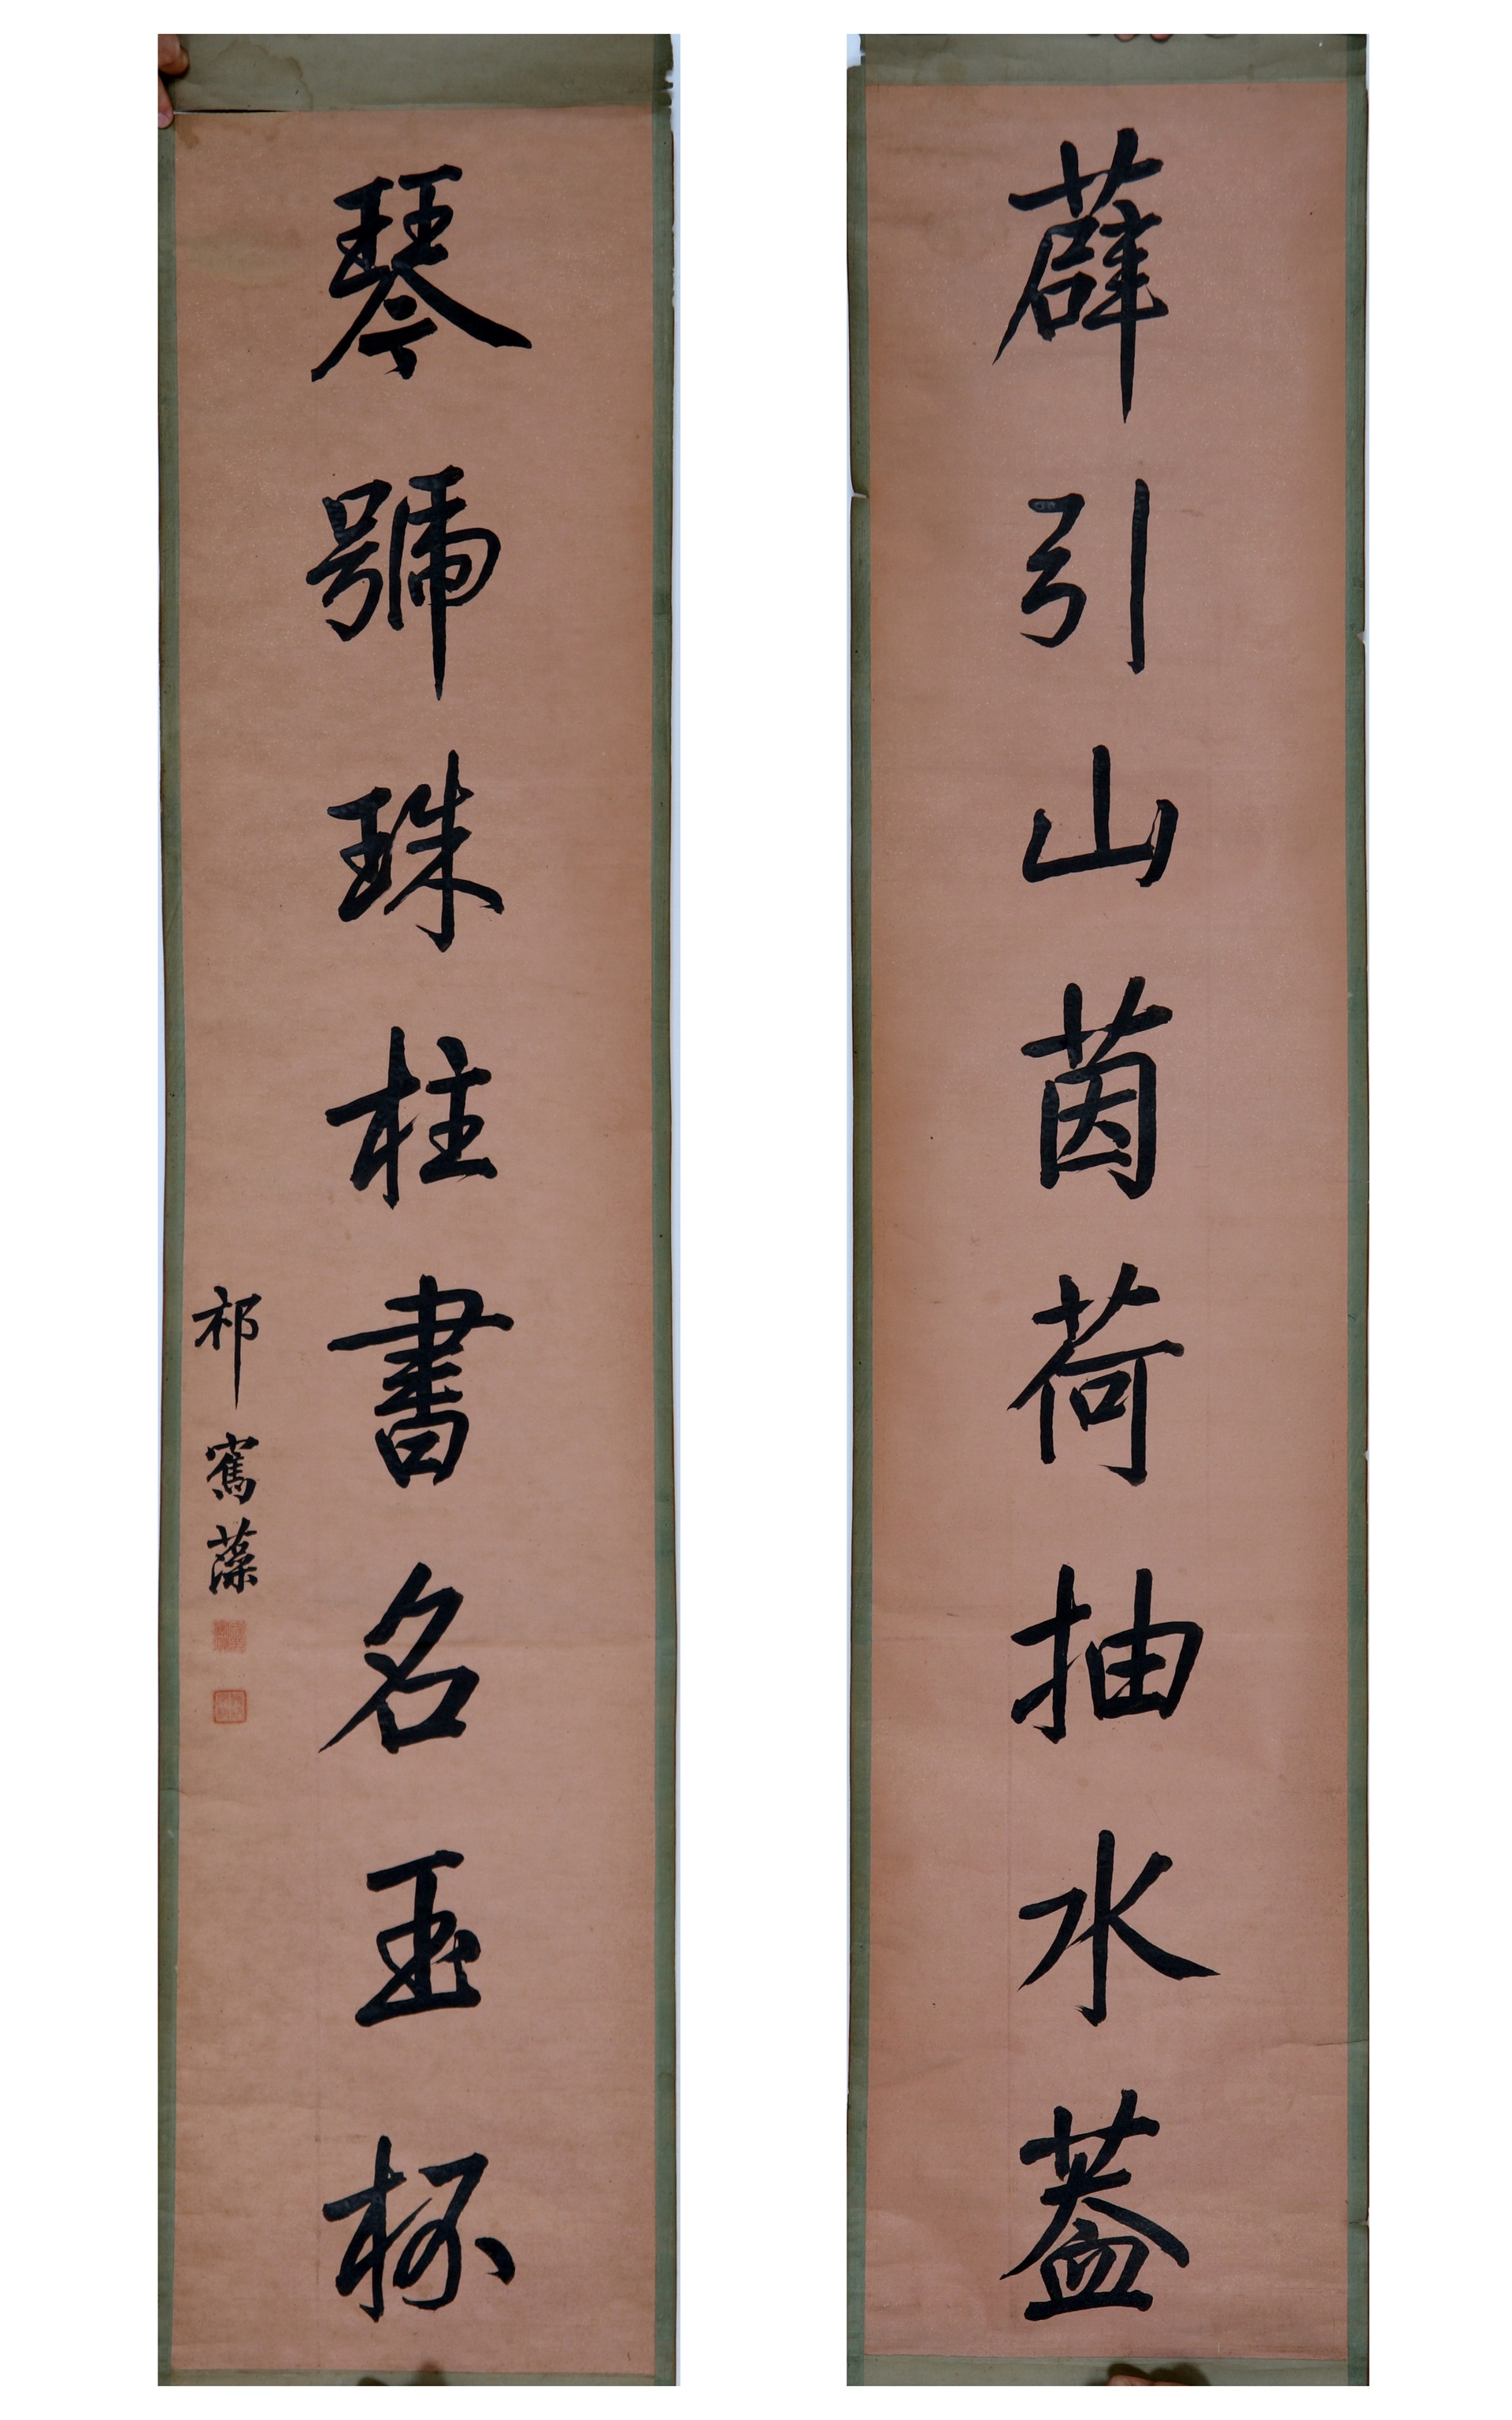 薜引山茵荷抽水蓋
琴號珠柱書名玉杯
祁寯藻